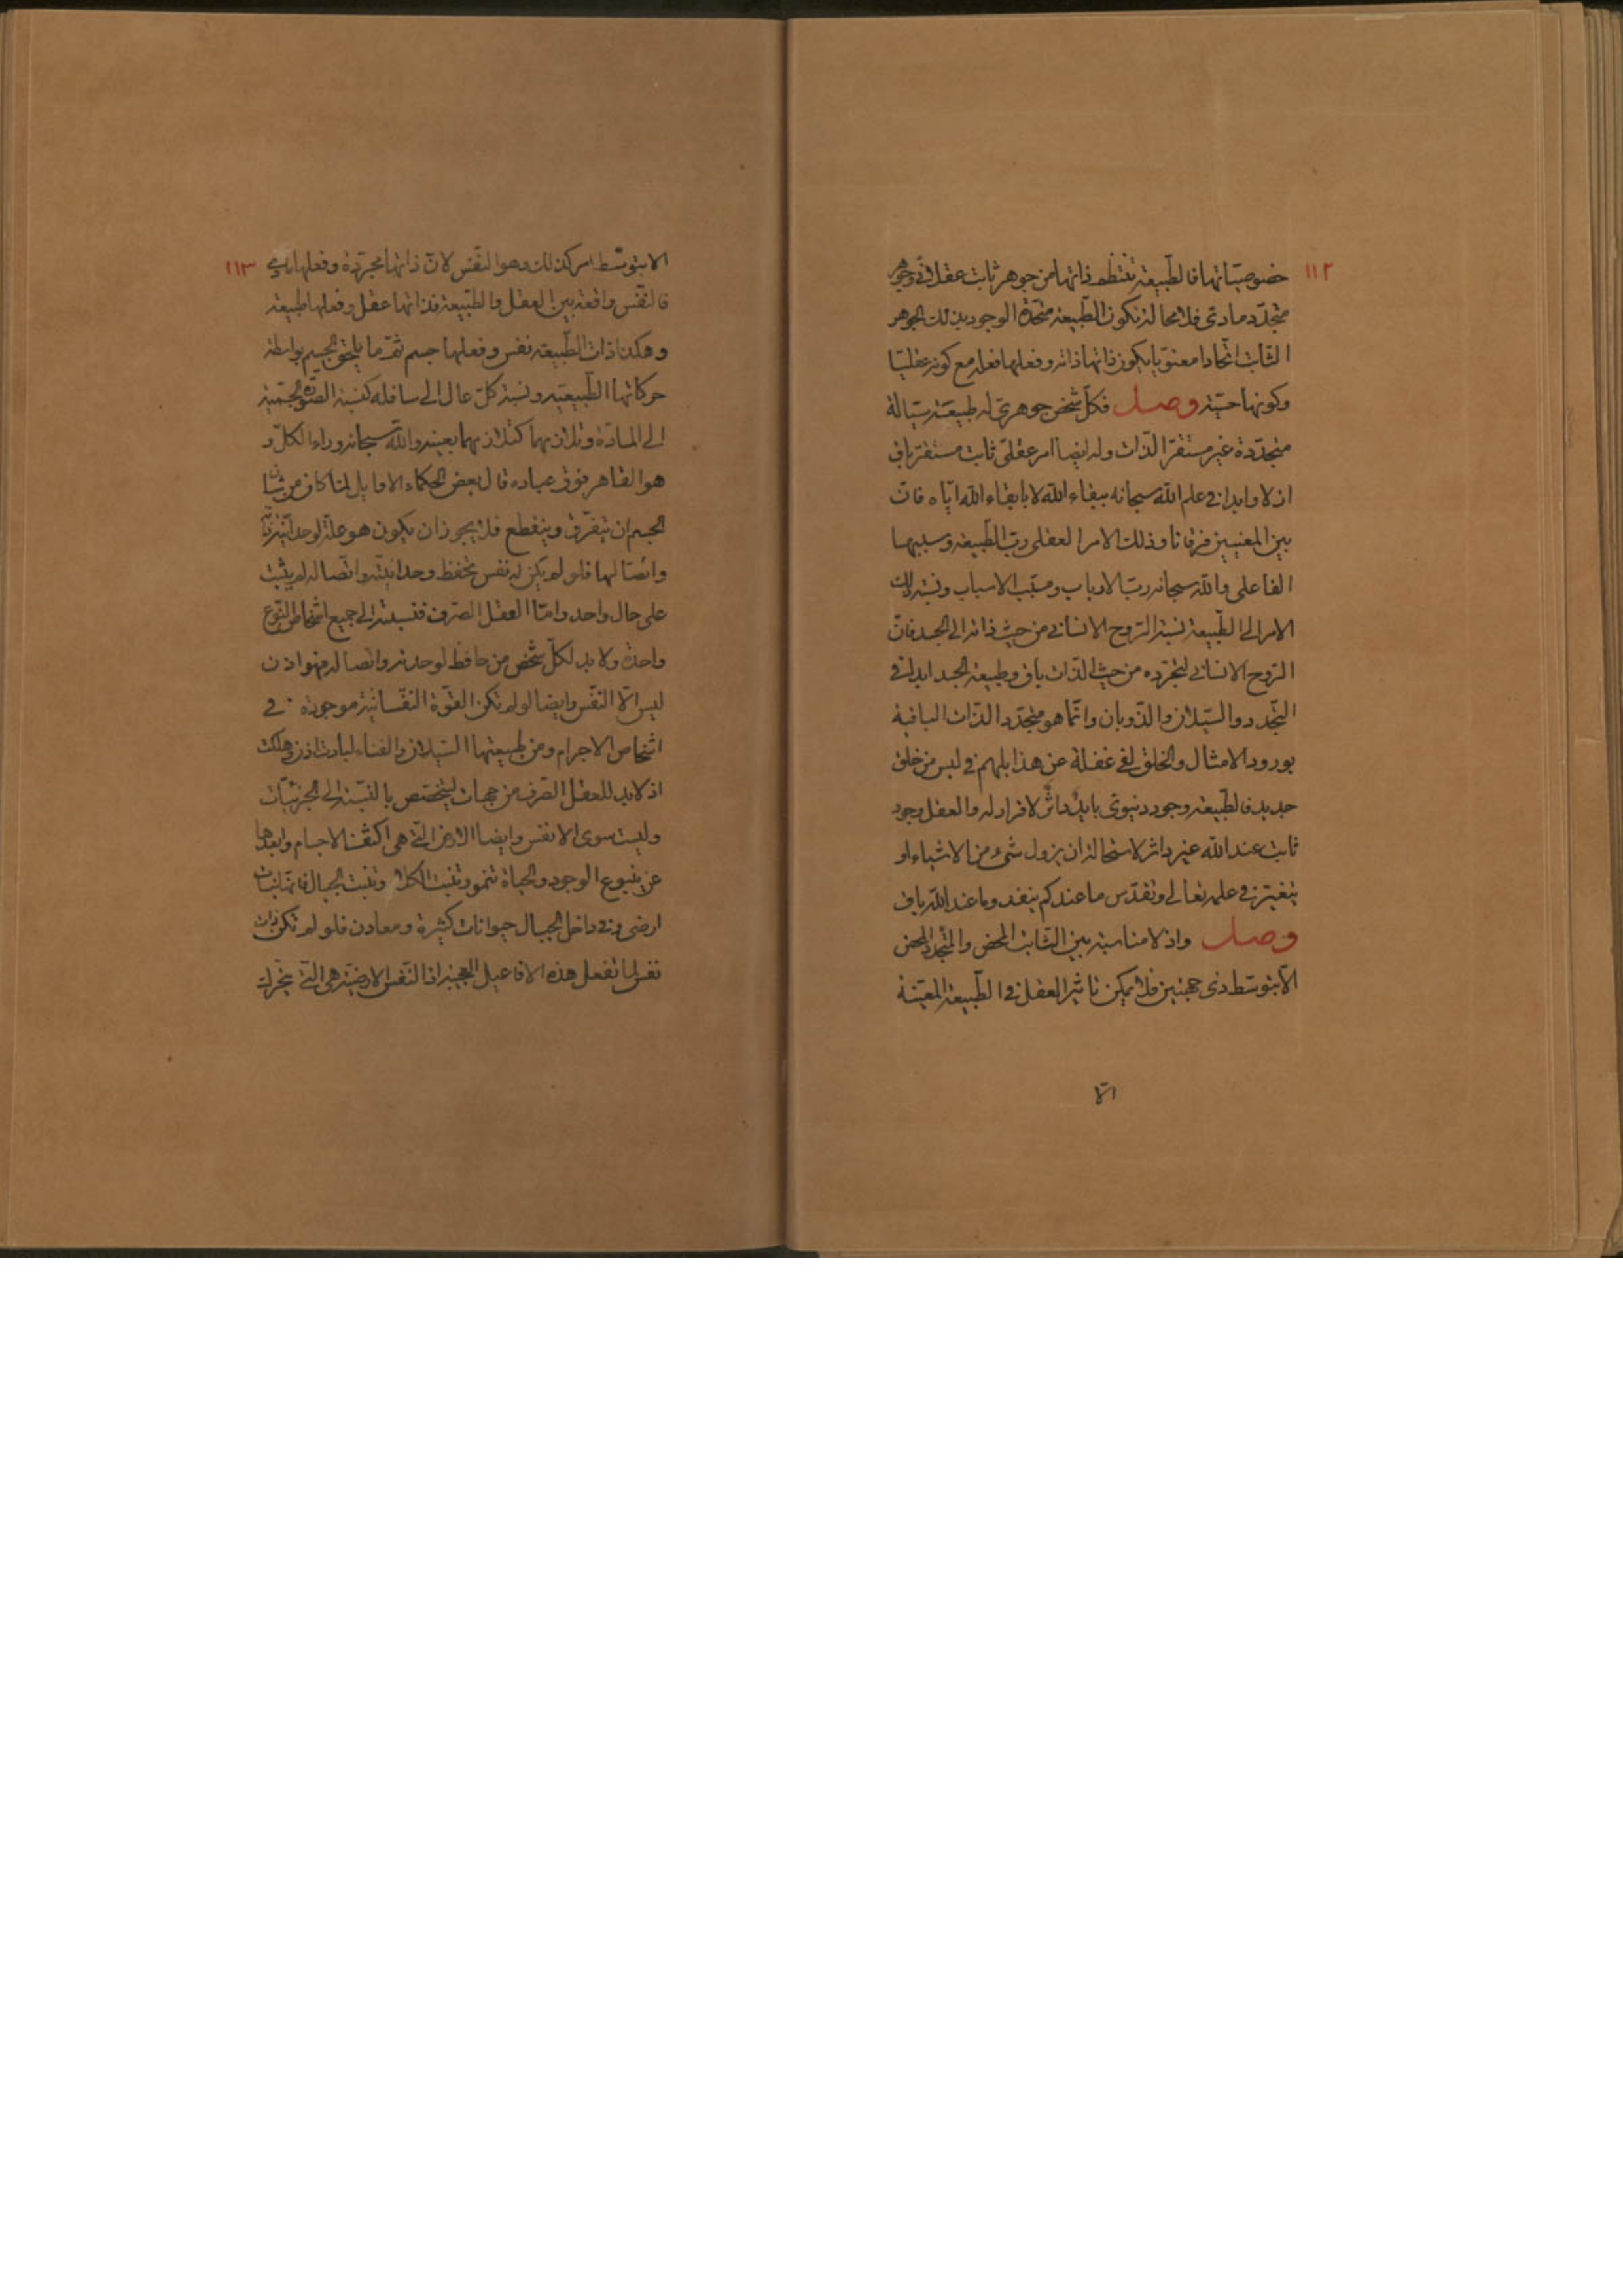 ١١٢
خصوصيّاتها فالطّبيعة تنتظم ذاتها من جوهر ثابت عقلانيّ وجوهر
متجدّد مادى فلا محالة تكون الطّبيعة متحدة الوجود بذلك الجوهر
الثابت اتّحادا معنويّا يكون ذاتها ذاته وفعلها فعله مع كونه عقليّا
وكونها حسيّة وصل فكلّ شخص جوهرىّ له طبيعة سيّالة
متجدّدة غير مستقر الذّات وله ايضا امر عقلىّ ثابت مستقرّ باق
ازلا وابدا في علم الله سبحانه ببقاء الله لا بابقاء الله ايّاه فان
بين المعنيين فرقانا وذلك الامر العقلى ربّ الطّبيعة وسببها
الفاعلى والله سبحانه ربّ الارباب ومسبّب الاسباب ونسبة ذلك
الامر الى الطّبيعة نسبة الرّوح الانسانى من حيث ذاته الى الجسد فانّ
الرّوح الانسانى لتجرّده من حيث الذّات باق وطبيعة الجسد ابدا في
التّجدد والسّيلان والذّوبان وانّما هو متجدّد الذّات الباقية
بورود الامثال والخلق لفى غفلة عن هذا بل هم في لبس من خلق
جديد فالطّبيعة وجود دنيوى بايد داثر لا قرار له والعقل وجود
ثابت عند الله غير داثر لاستحالة ان يزول شىء من الاشياء او
يتغيّر في علمه تعالى وتقدّس ما عندكم ينفد وما عند الله باق
وصل واذ لا مناسبة بين الثّابت المحض والمتجدّد المحض
الّا بتوسّط ذى جهتين فلا يمكن تاثير العقل في الطّبيعة المعيّنة
الّا
١١٣
الا بتوسّط امر كذلك وهو النفس لانّ ذاتها مجرّدة وفعلها مادي
فالنّفس واقعة بين العقل والطّبيعة فذاتها عقل وفعلها طبيعة
وهكذا ذات الطّبيعة نفس وفعلها جسم ثمّ ما يلحق الجسم بواسطة
حركاتها الطّبيعيّة ونسبة كلّ عال الى سافله كنسبة الصّورة الجسميّة
الى المادّة وتلازمهما كتلازمهما بعينه والله سبحانه وراء الكلّ و
هو القاهر فوق عباده قال بعض الحكماء الاوايل لمّا كان من شان
الجسم ان يتفرّق وينقطع فلا يجوز ان يكون هو علّة لوحدانيّة
واتصالها فلو لم يكن له نفس تحفظ وحدانيّته واتّصاله لم يثبت
على حال واحد وامّا العقل الصّرف فنسبته الى جميع اشخاص النّوع
واحدة ولا بد لكلّ شخص من حافظ لوحدته واتصاله فهو اذن
ليس الّا النّفس وايضا لو لم تكن القوّة النّفسانيّة موجودة في
اشخاص الاجرام ومن طبيعتها السّيلان والفناء لبادت اذن وهلكت
اذ لابد للعقل الصّرف من جهات ليختص بالنّسبة الى الجزئيّات
وليست سوى الانفس وايضا الارض الّتى هى اكثف الاجسام وابعدها
عن ينبوع الوجود والحياة تنمو وتنبت الكلا وتنبت الجبال فانّها نبات
ارضى وفى داخل الجبال حيوانات كثيرة ومعادن فلو لم تكن ذات
نفس لما تفعل هذه الافاعيل العجيبة اذ النّفس الارضيّة هى الّتى تحرّك